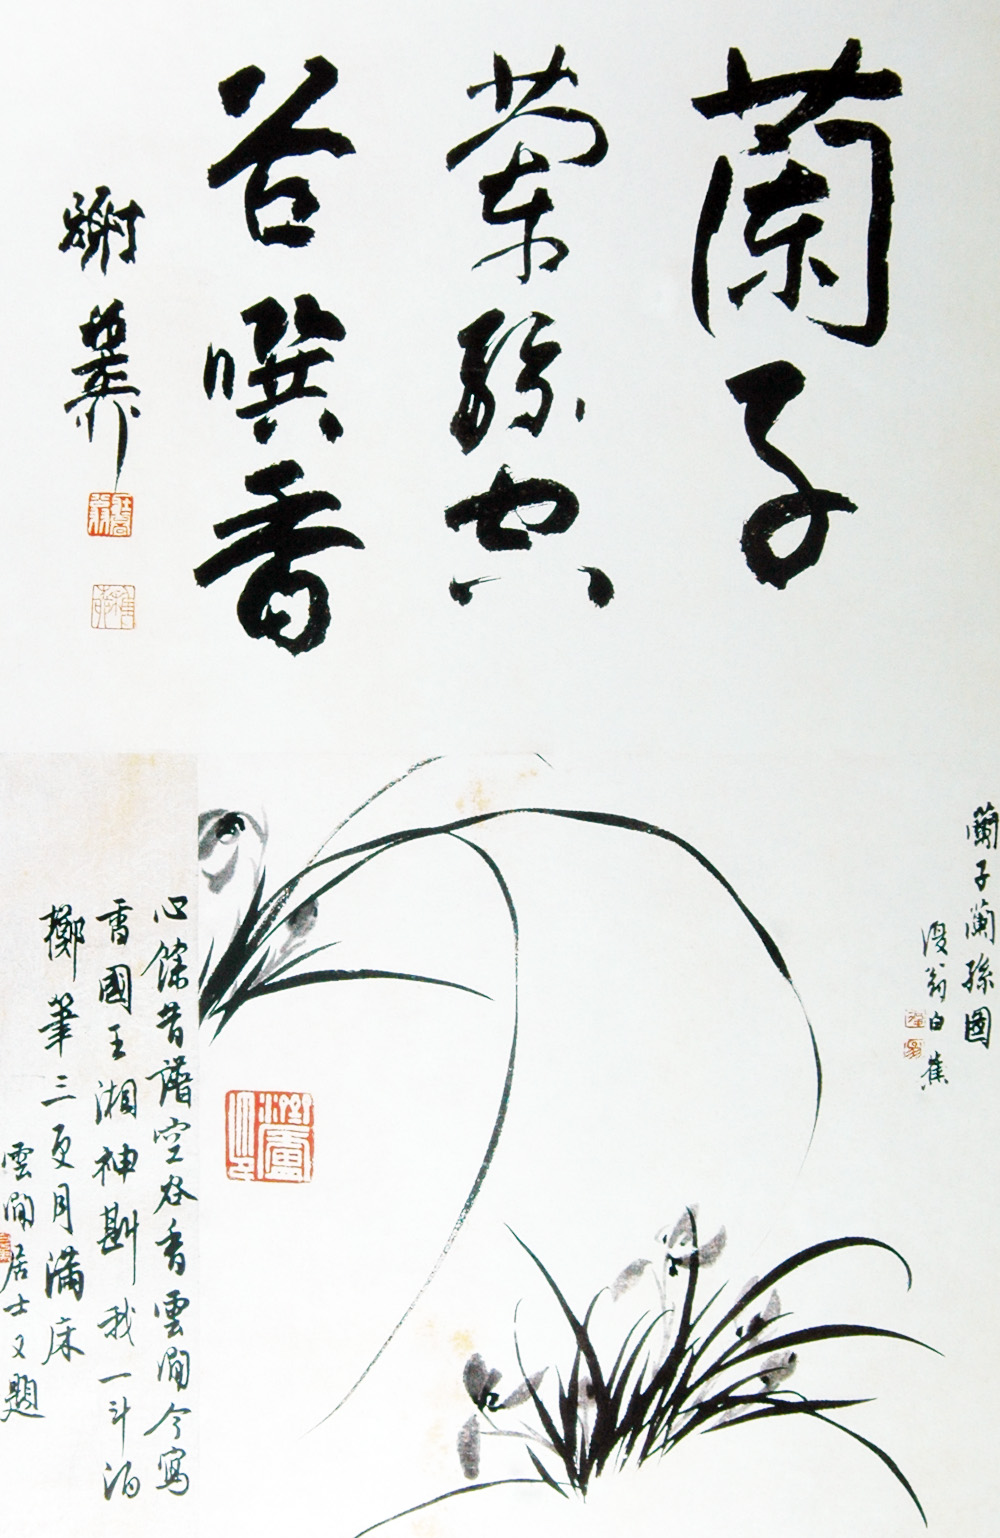 蘭子
蘭孫空
谷噀香
蘭子蘭孫圖
復翁白蕉
心餘昔譜空谷香雲間今寫
香國王湘神斟我一斗酒
擲筆三更月滿床
雲間居士又題